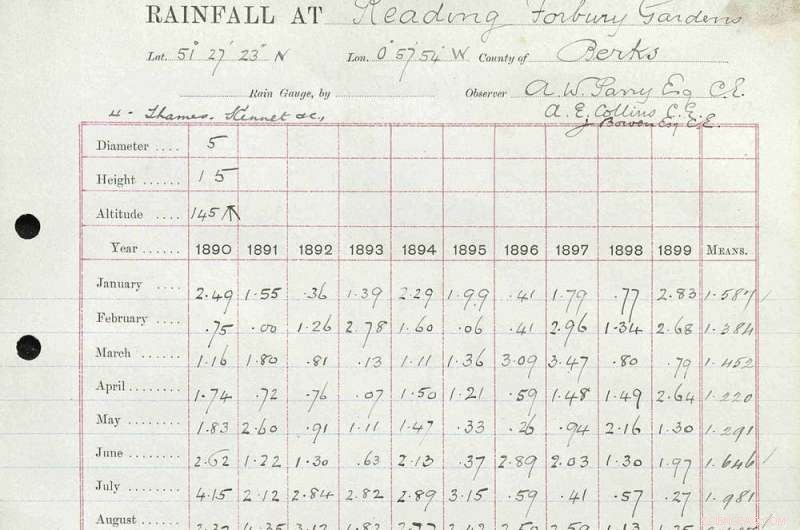 RAINFALL AT Reading Forbury Gardens
Lat. 51° 27' 23" N Lon. 0° 57' 54" W County of Berks
Rain Gauge, by Observer A. W. Parry Esq C.E.
4 - Thames, Kennet &c, A. E. Collins C.E.
J Bowen Esq C.E.
Diameter .... 5
Height ...... 1 5
Altitude .... 145
Year ...... 1890 1891 1892 1893 1894 1895 1896 1897 1898 1899 MEANS.
January ...... 2.49 1.55 .36 1.39 2.29 1.99 .41 1.79 .77 2.83 1.587
February ..... .75 .00 1.26 2.78 1.60 .06 .41 2.96 1.34 2.68 1.384
March ...... 1.16 1.80 .81 .13 1.11 1.36 3.09 3.47 .80 .79 1.452
April ........ 1.74 .72 .76 .07 1.50 1.21 .59 1.48 1.49 2.64 1.220
May ........ 1.83 2.60 .91 1.11 1.47 .33 .26 .94 2.16 1.30 1.291
June ........ 2.62 1.22 1.30 .63 2.13 .37 2.89 2.03 1.30 1.97 1.646
July ........ 4.15 2.12 2.84 2.82 2.89 3.15 .59 .41 .57 .27 1.981
August ......